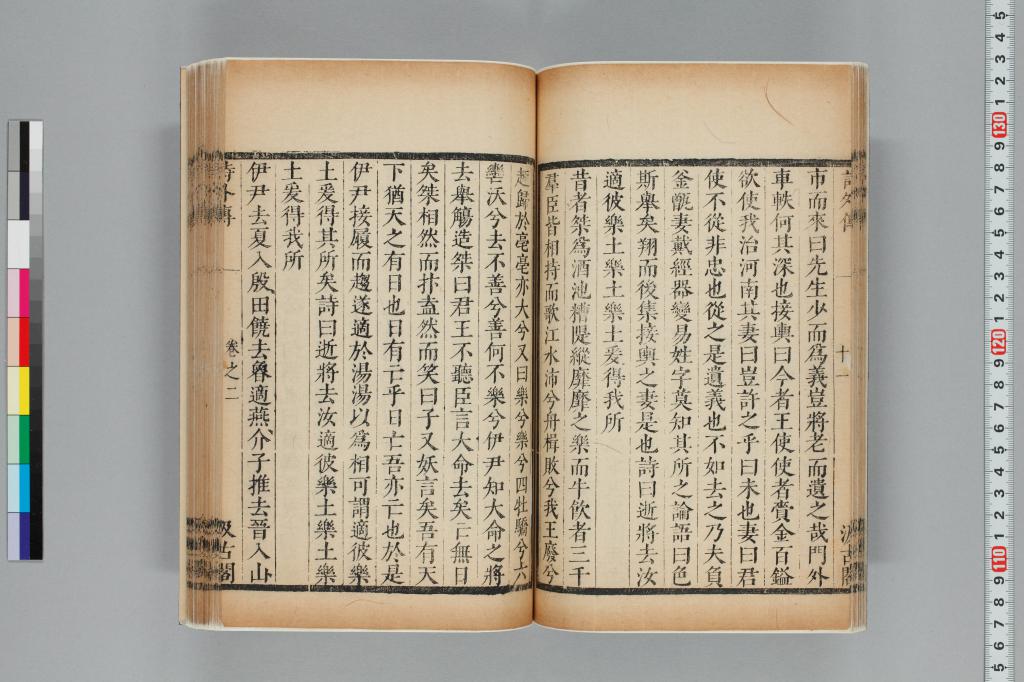 詩外傳
十一
汲古閣
市而來曰先生少而爲義豈將老而遺之哉門外
車軼何其深也接輿曰今者王使使者賫金百鎰
欲使我治河南其妻曰豈許之乎曰未也妻曰君
使不從非忠也從之是遺義也不如去之乃夫負
釜甑妻戴經器變易姓字莫知其所之論語曰色
斯舉矣翔而後集接輿之妻是也詩曰逝將去汝
適彼樂土樂土樂土爰得我所
昔者桀爲酒池糟隄縱靡靡之樂而牛飲者三千
羣臣皆相持而歌江水沛兮舟楫敗兮我王廢兮
趣歸於亳亳亦大兮又曰樂兮樂兮四牡驕兮六
轡沃兮去不善兮善何不樂兮伊尹知大命之將
去舉觴造桀曰君王不聽臣言大命去矣亡無日
矣桀相然而抃盍然而笑曰子又妖言矣吾有天
下猶天之有日也日有亡乎日亡吾亦亡也於是
伊尹接履而趨遂適於湯湯以爲相可謂適彼樂
土爰得其所矣詩曰逝將去汝適彼樂土樂土樂
土爰得我所
伊尹去夏入殷田饒去魯適燕介子推去晉入山
詩外傳
卷之二
汲古閣
130
120
110